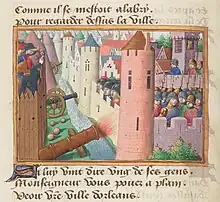 Comme il se mectoit alabry.
Pour regarder dessus la ville.
Si luy vint dire vng de ses gens.
Monseigneur vous poues a plain.
Veoir vre ville dorleans.